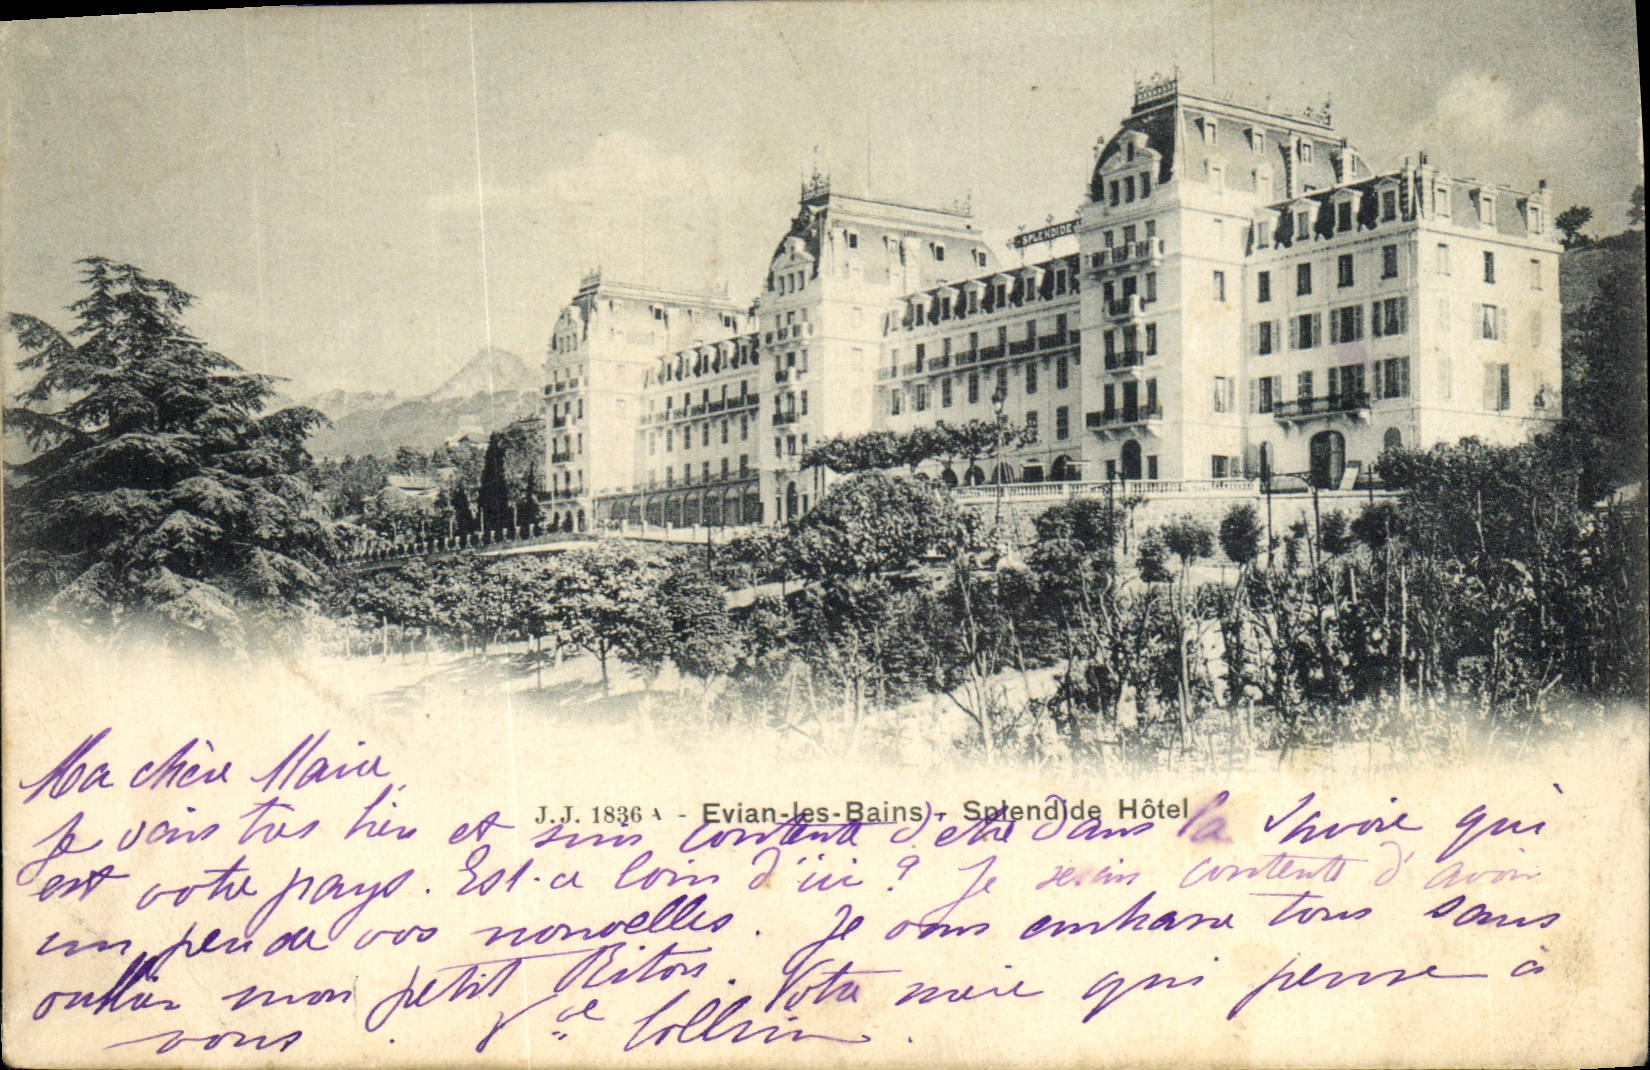 SPLENDIDE
J.J. 1836 A - Evian-les-Bains - Splendide Hôtel
Ma chère Marie
Je vais très bien et suis contente d'être dans la Savoie qui
est votre pays. Est-ce loin d'ici ? Je serais contente d'avoir
un peu de vos nouvelles. Je vous embrasse tous sans
oublier mon petit Riton. Votre mère qui pense à
vous. Vve Collin.